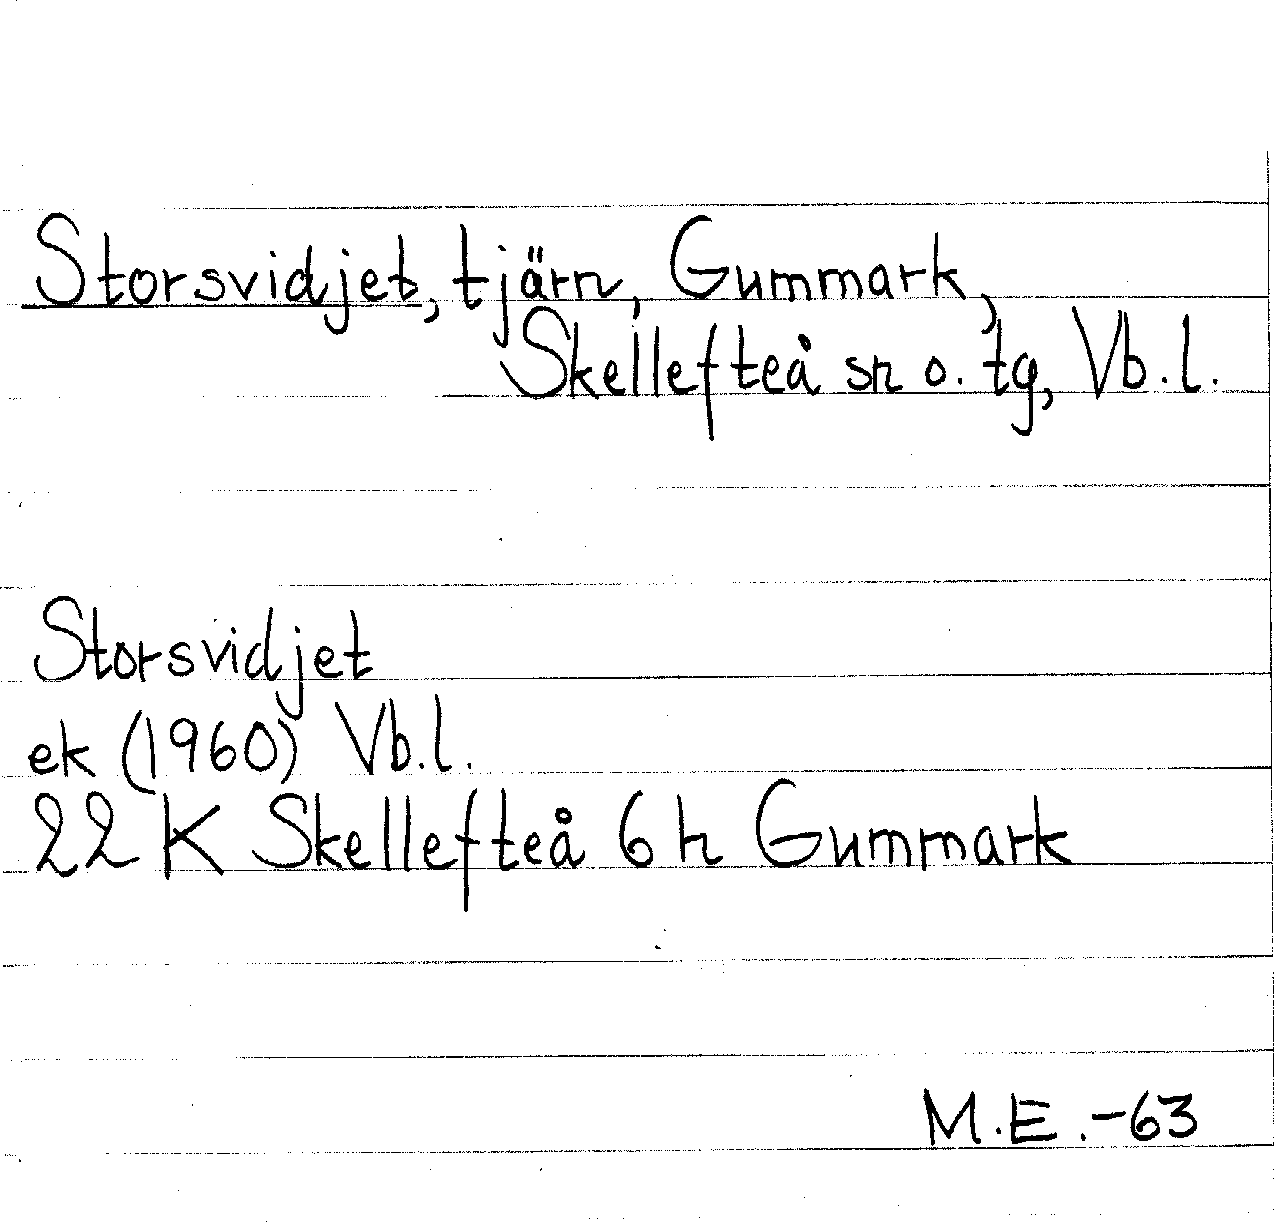 Storsvidjet, tjärn, Gummark,
Skellefteå sn o. tg, Vb.l.
Storsvidjet
ek (1960) Vb.l.
22 K Skellefteå 6 h Gummark
M.E.-63